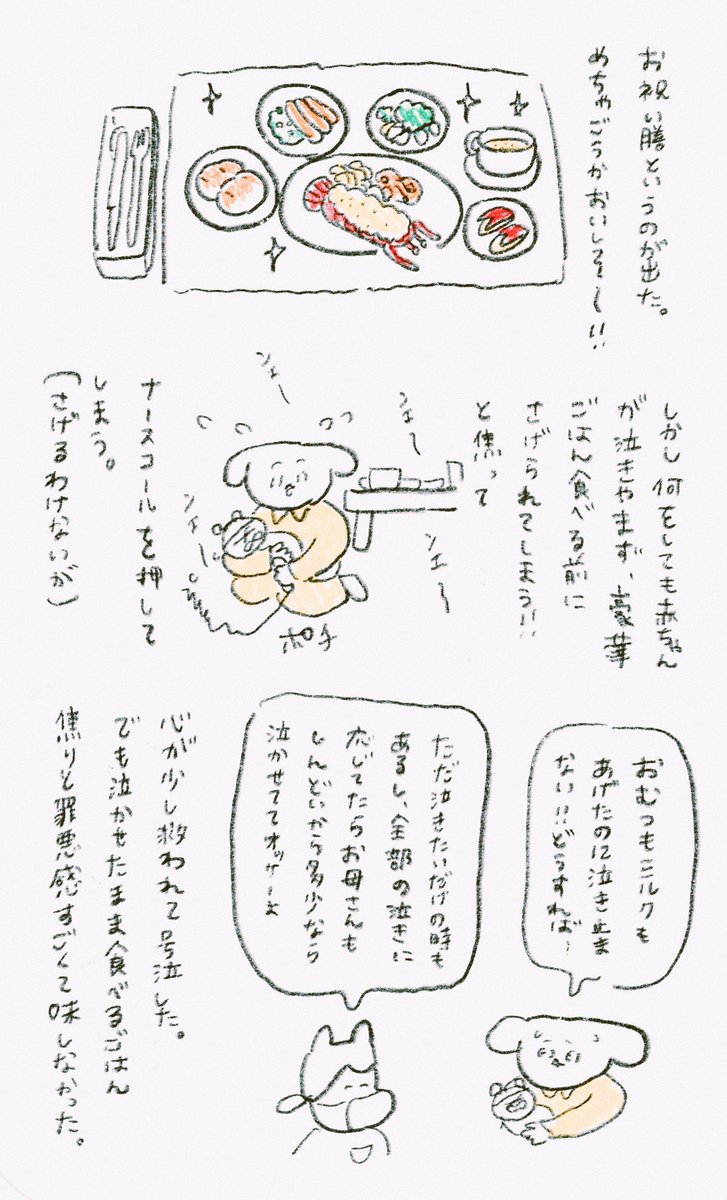 お祝い膳というのが出た。
めちゃごうかおいしそ〜!!
しかし何をしても赤ちゃん
が泣きやまず、豪華
ごはん食べる前に
さげられてしまう!!
と焦って
ンェー
ンェー
ンェー
ンェー
ポチ
ナースコールを押して
しまう。
(さげるわけないが)
おむつもミルクも
あげたのに泣き止ま
ない!!どうすれば〜
ただ泣きたいだけの時も
あるし、全部の泣きに
応じてたらお母さんも
しんどいから多少なら
泣かせててオッケーよ
心が少し救われて号泣した。
でも泣かせたまま食べるごはん
焦りと罪悪感すごくて味しなかった。